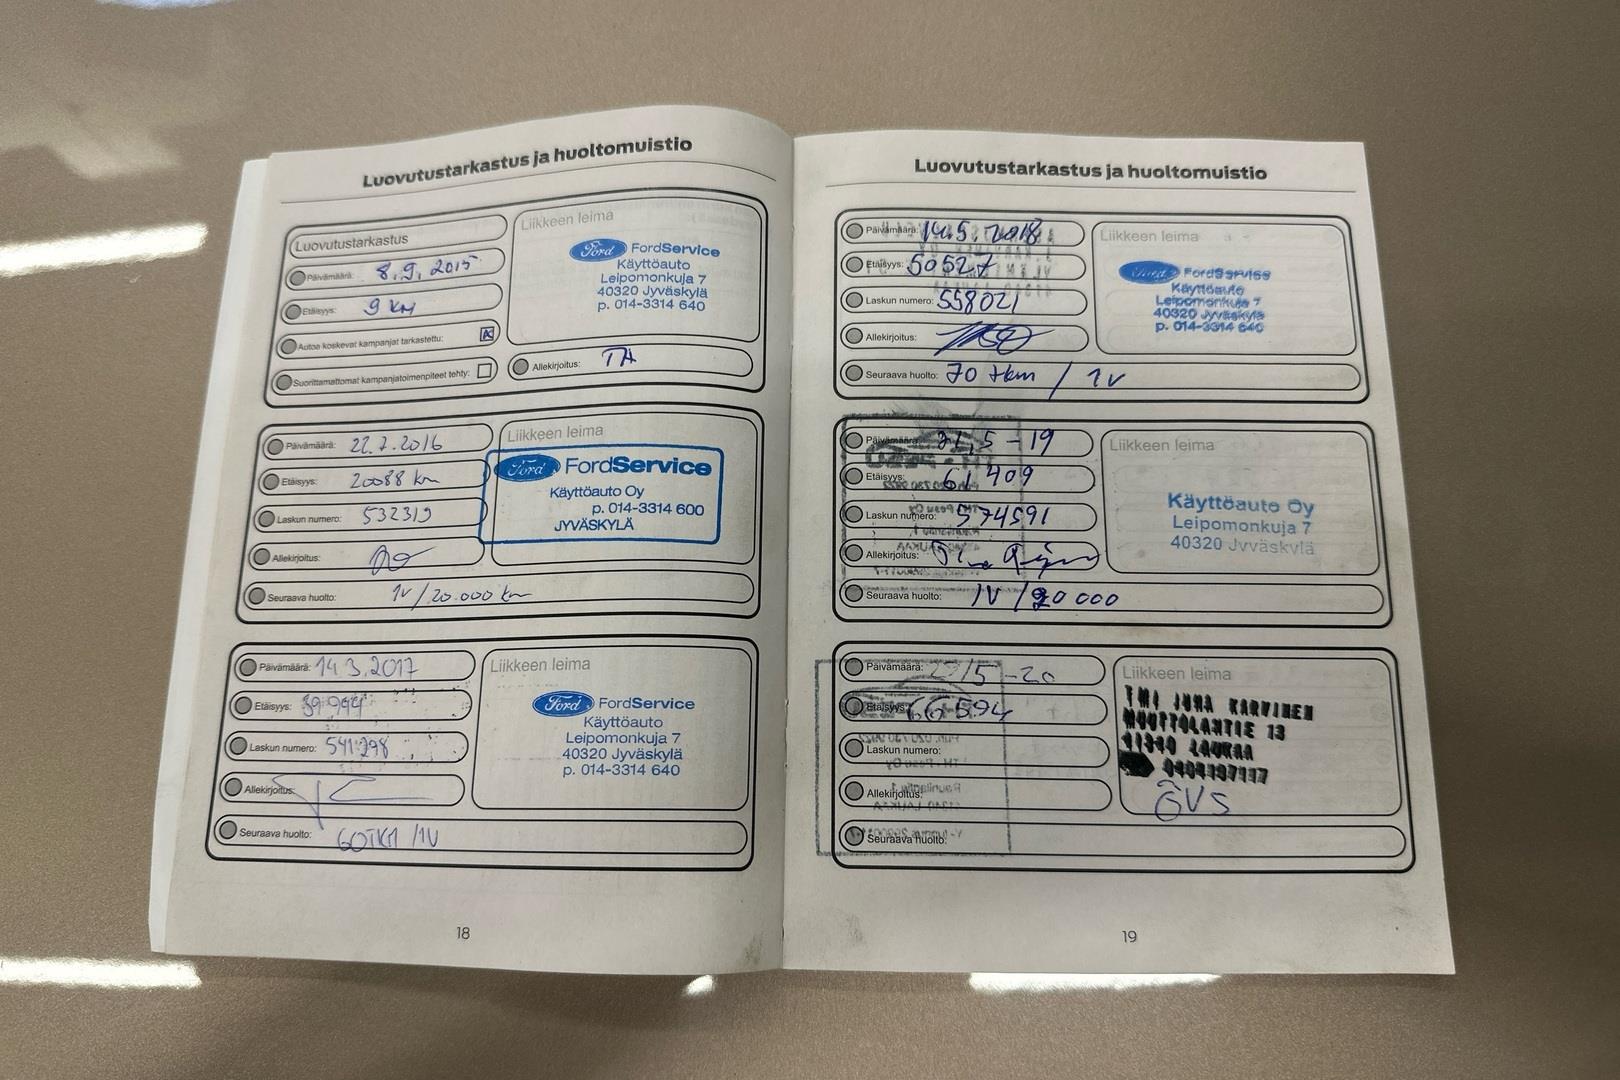 Luovutustarkastus ja huoltomuistio
Luovutustarkastus
Päivämäärä: 8.9.2015
Etäisyys: 9 KM
Autoa koskevat kampanjat tarkastettu:
Suorittamattomat kampanjatoimenpiteet tehty:
Liikkeen leima
Ford FordService
Käyttöauto
Leipomonkuja 7
40320 Jyväskylä
p. 014-3314 640
Allekirjoitus: TA
Päivämäärä: 22.7.2016
Etäisyys: 20088 km
Laskun numero: 532319
Allekirjoitus:
Seuraava huolto: 1V/20.000 km
Liikkeen leima
Ford FordService
Käyttöauto Oy
p. 014-3314 600
JYVÄSKYLÄ
Päivämäärä: 14.3.2017
Etäisyys: 39994
Laskun numero: 541298
Allekirjoitus:
Seuraava huolto: 60TKM /1V
Liikkeen leima
Ford FordService
Käyttöauto
Leipomonkuja 7
40320 Jyväskylä
p. 014-3314 640
18
Luovutustarkastus ja huoltomuistio
Päivämäärä: 14.5.2018
Etäisyys: 50527
Laskun numero: 558021
Allekirjoitus:
Seuraava huolto: 70 tkm / 1v
Liikkeen leima
Ford FordService
Käyttöauto
Leipomonkuja 7
40320 Jyväskylä
p. 014-3314 640
Päivämäärä: 21.5-19
Etäisyys: 61409
Laskun numero: 574591
Allekirjoitus:
Seuraava huolto: 1V /20 000
Liikkeen leima
Käyttöauto Oy
Leipomonkuja 7
40320 Jyväskylä
Päivämäärä: /5-20
Etäisyys: 66594
Laskun numero:
Allekirjoitus:
Seuraava huolto:
Liikkeen leima
TMI JUHA KARVINEN
MUOTTOLANTIE 13
41340 LAUKAA
0404197117
ÖVS
19